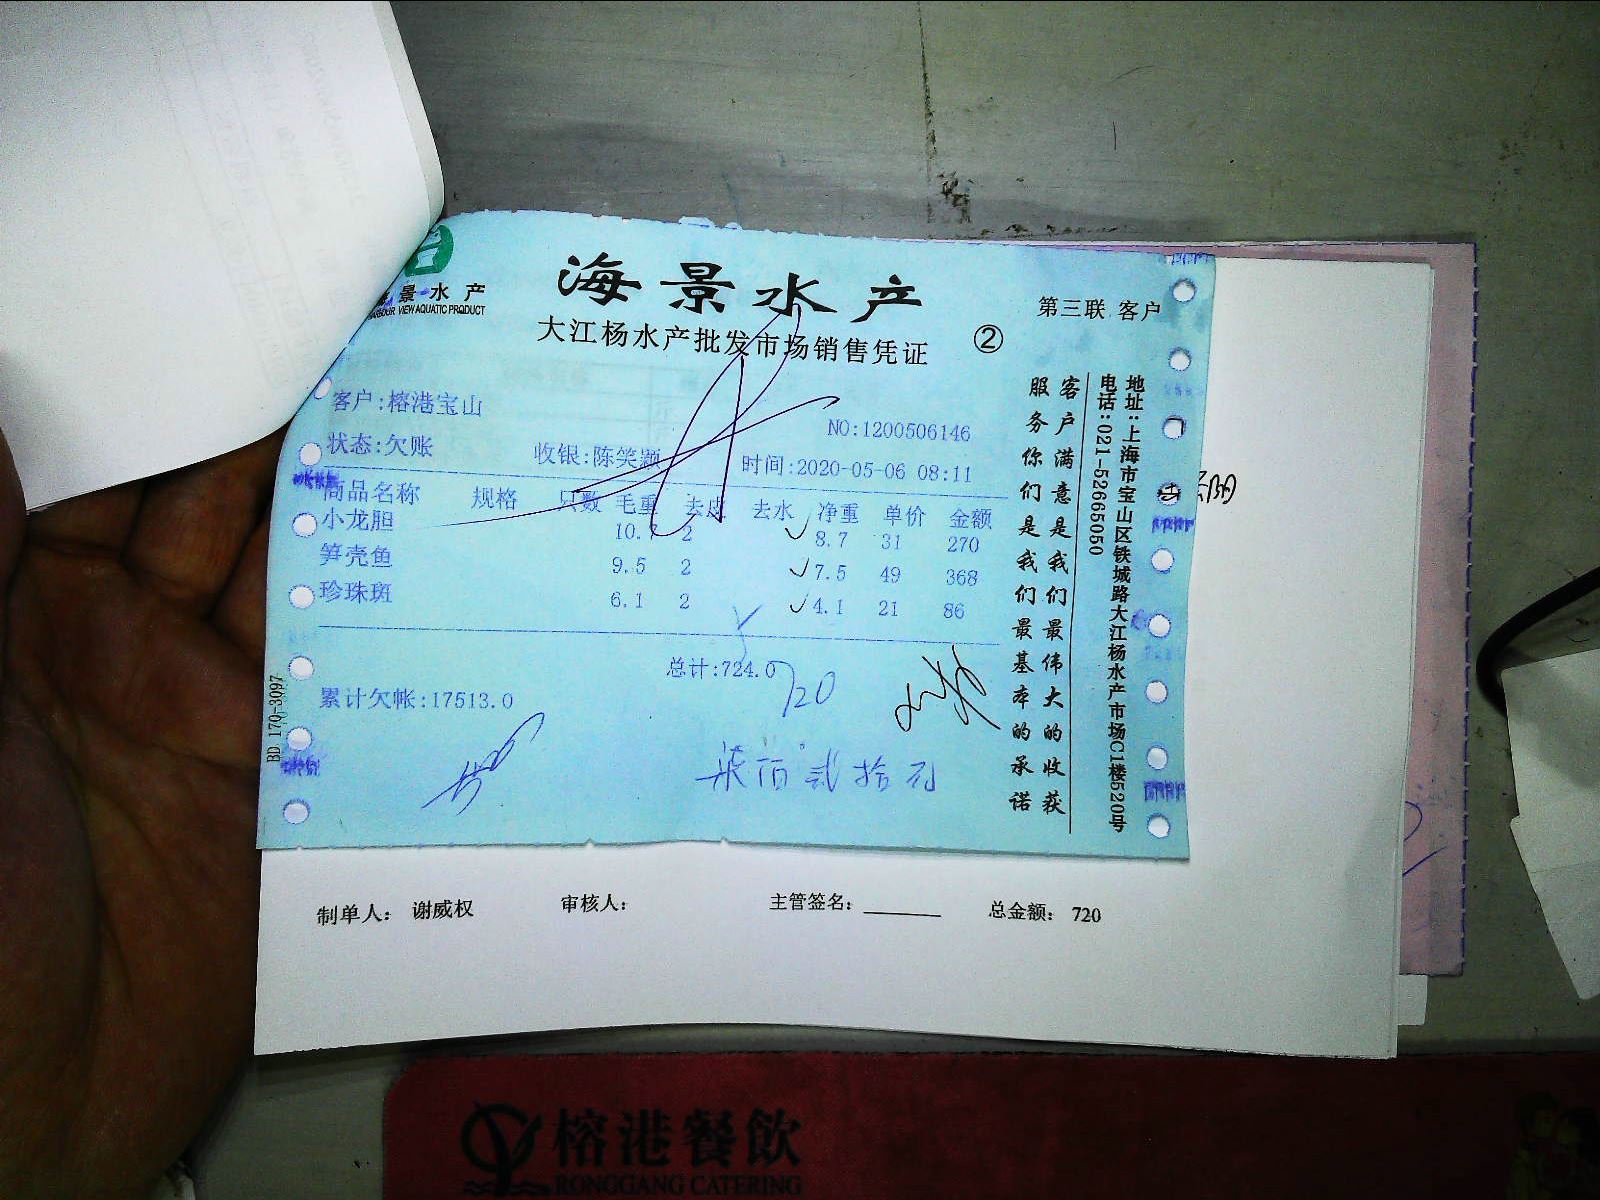 景水产
VIEW AQUATIC PRODUCT
海景水产
大江杨水产批发市场销售凭证
②
第三联 客户
客户:榕港宝山
NO:1200506146
状态:欠账
收银:陈笑颢
时间:2020-05-06 08:11
商品名称 规格 只数 毛重 去皮 去水 净重 单价 金额
小龙胆 10.7 2 8.7 31 270
笋壳鱼 9.5 2 7.5 49 368
珍珠斑 6.1 2 4.1 21 86
总计:724.0
720
累计欠帐:17513.0
柒佰贰拾元
BD 170-3097
客户满意是我们最伟大的收获
服务你们是我们最基本的承诺
地址:上海市宝山区铁城路大江杨水产市场C1楼520号
电话:021-52665050
制单人: 谢威权 审核人: 主管签名: 总金额: 720
榕港餐飲
RONGGANG CATERING